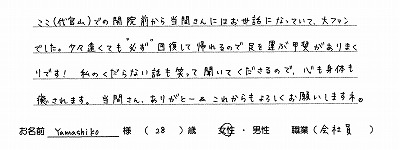 ここ(代官山)での開院前から当間さんにはお世話になっていて、大ファン
でした。夕々遠くても"必ず"回復して帰れるので足を運ぶ甲斐がありまく
りです！ 私のくだらない話も笑って聞いてくださるので、心も身体も
癒されます。当間さん、ありがと〜 & これからもよろしくお願いします。
お名前 Yamashiko 様 ( 28 ) 歳 女性・男性 職業 (会社員 )